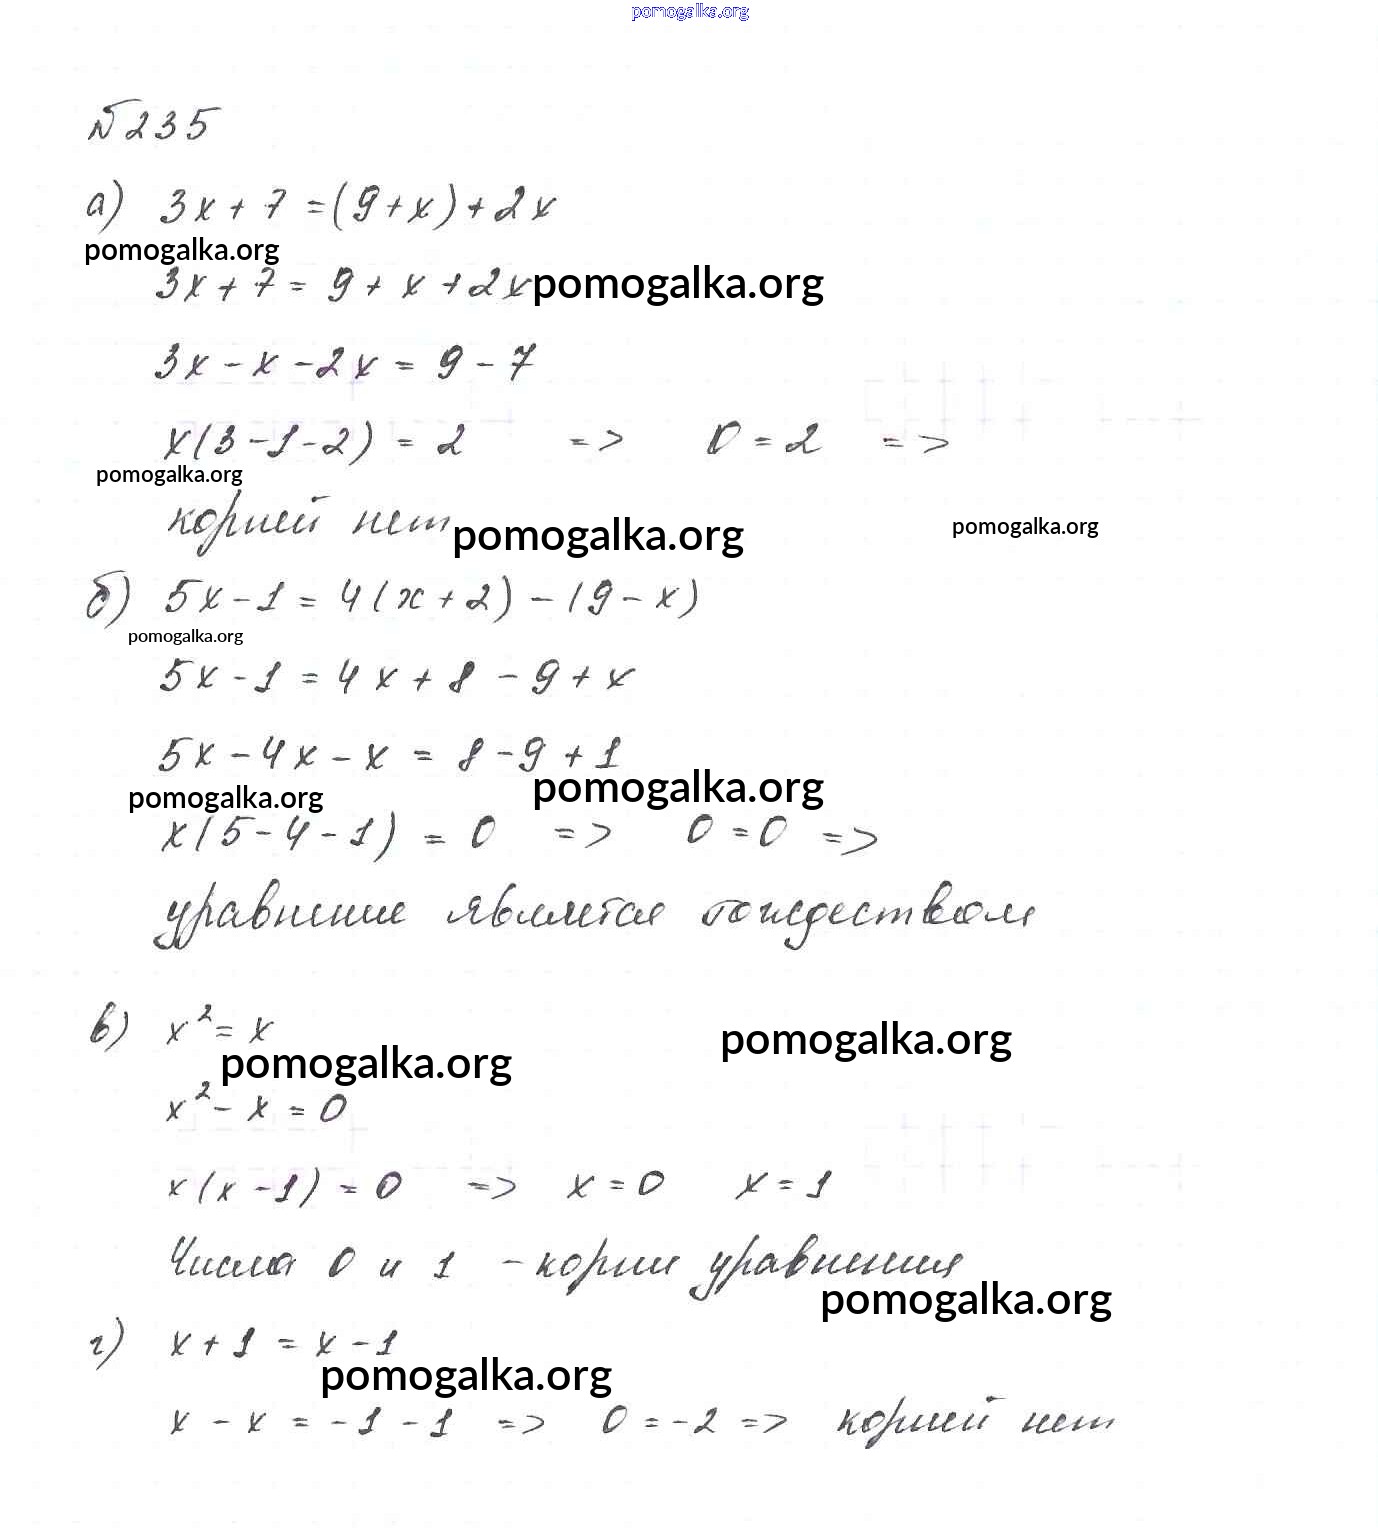 pomogalka.org
№235
а) 3x + 7 = (9 + x) + 2x
pomogalka.org
3x + 7 = 9 + x + 2x pomogalka.org
3x - x - 2x = 9 - 7
x(3 - 1 - 2) = 2 => 0 = 2 =>
pomogalka.org
корней нет pomogalka.org pomogalka.org
б) 5x - 1 = 4(x + 2) - (9 - x)
pomogalka.org
5x - 1 = 4x + 8 - 9 + x
5x - 4x - x = 8 - 9 + 1
pomogalka.org pomogalka.org
x(5 - 4 - 1) = 0 => 0 = 0 =>
уравнение является тождеством
в) x² = x
pomogalka.org pomogalka.org
x² - x = 0
x(x - 1) = 0 => x = 0 x = 1
Числа 0 и 1 - корни уравнения
pomogalka.org
г) x + 1 = x - 1
pomogalka.org
x - x = -1 - 1 => 0 = -2 => корней нет